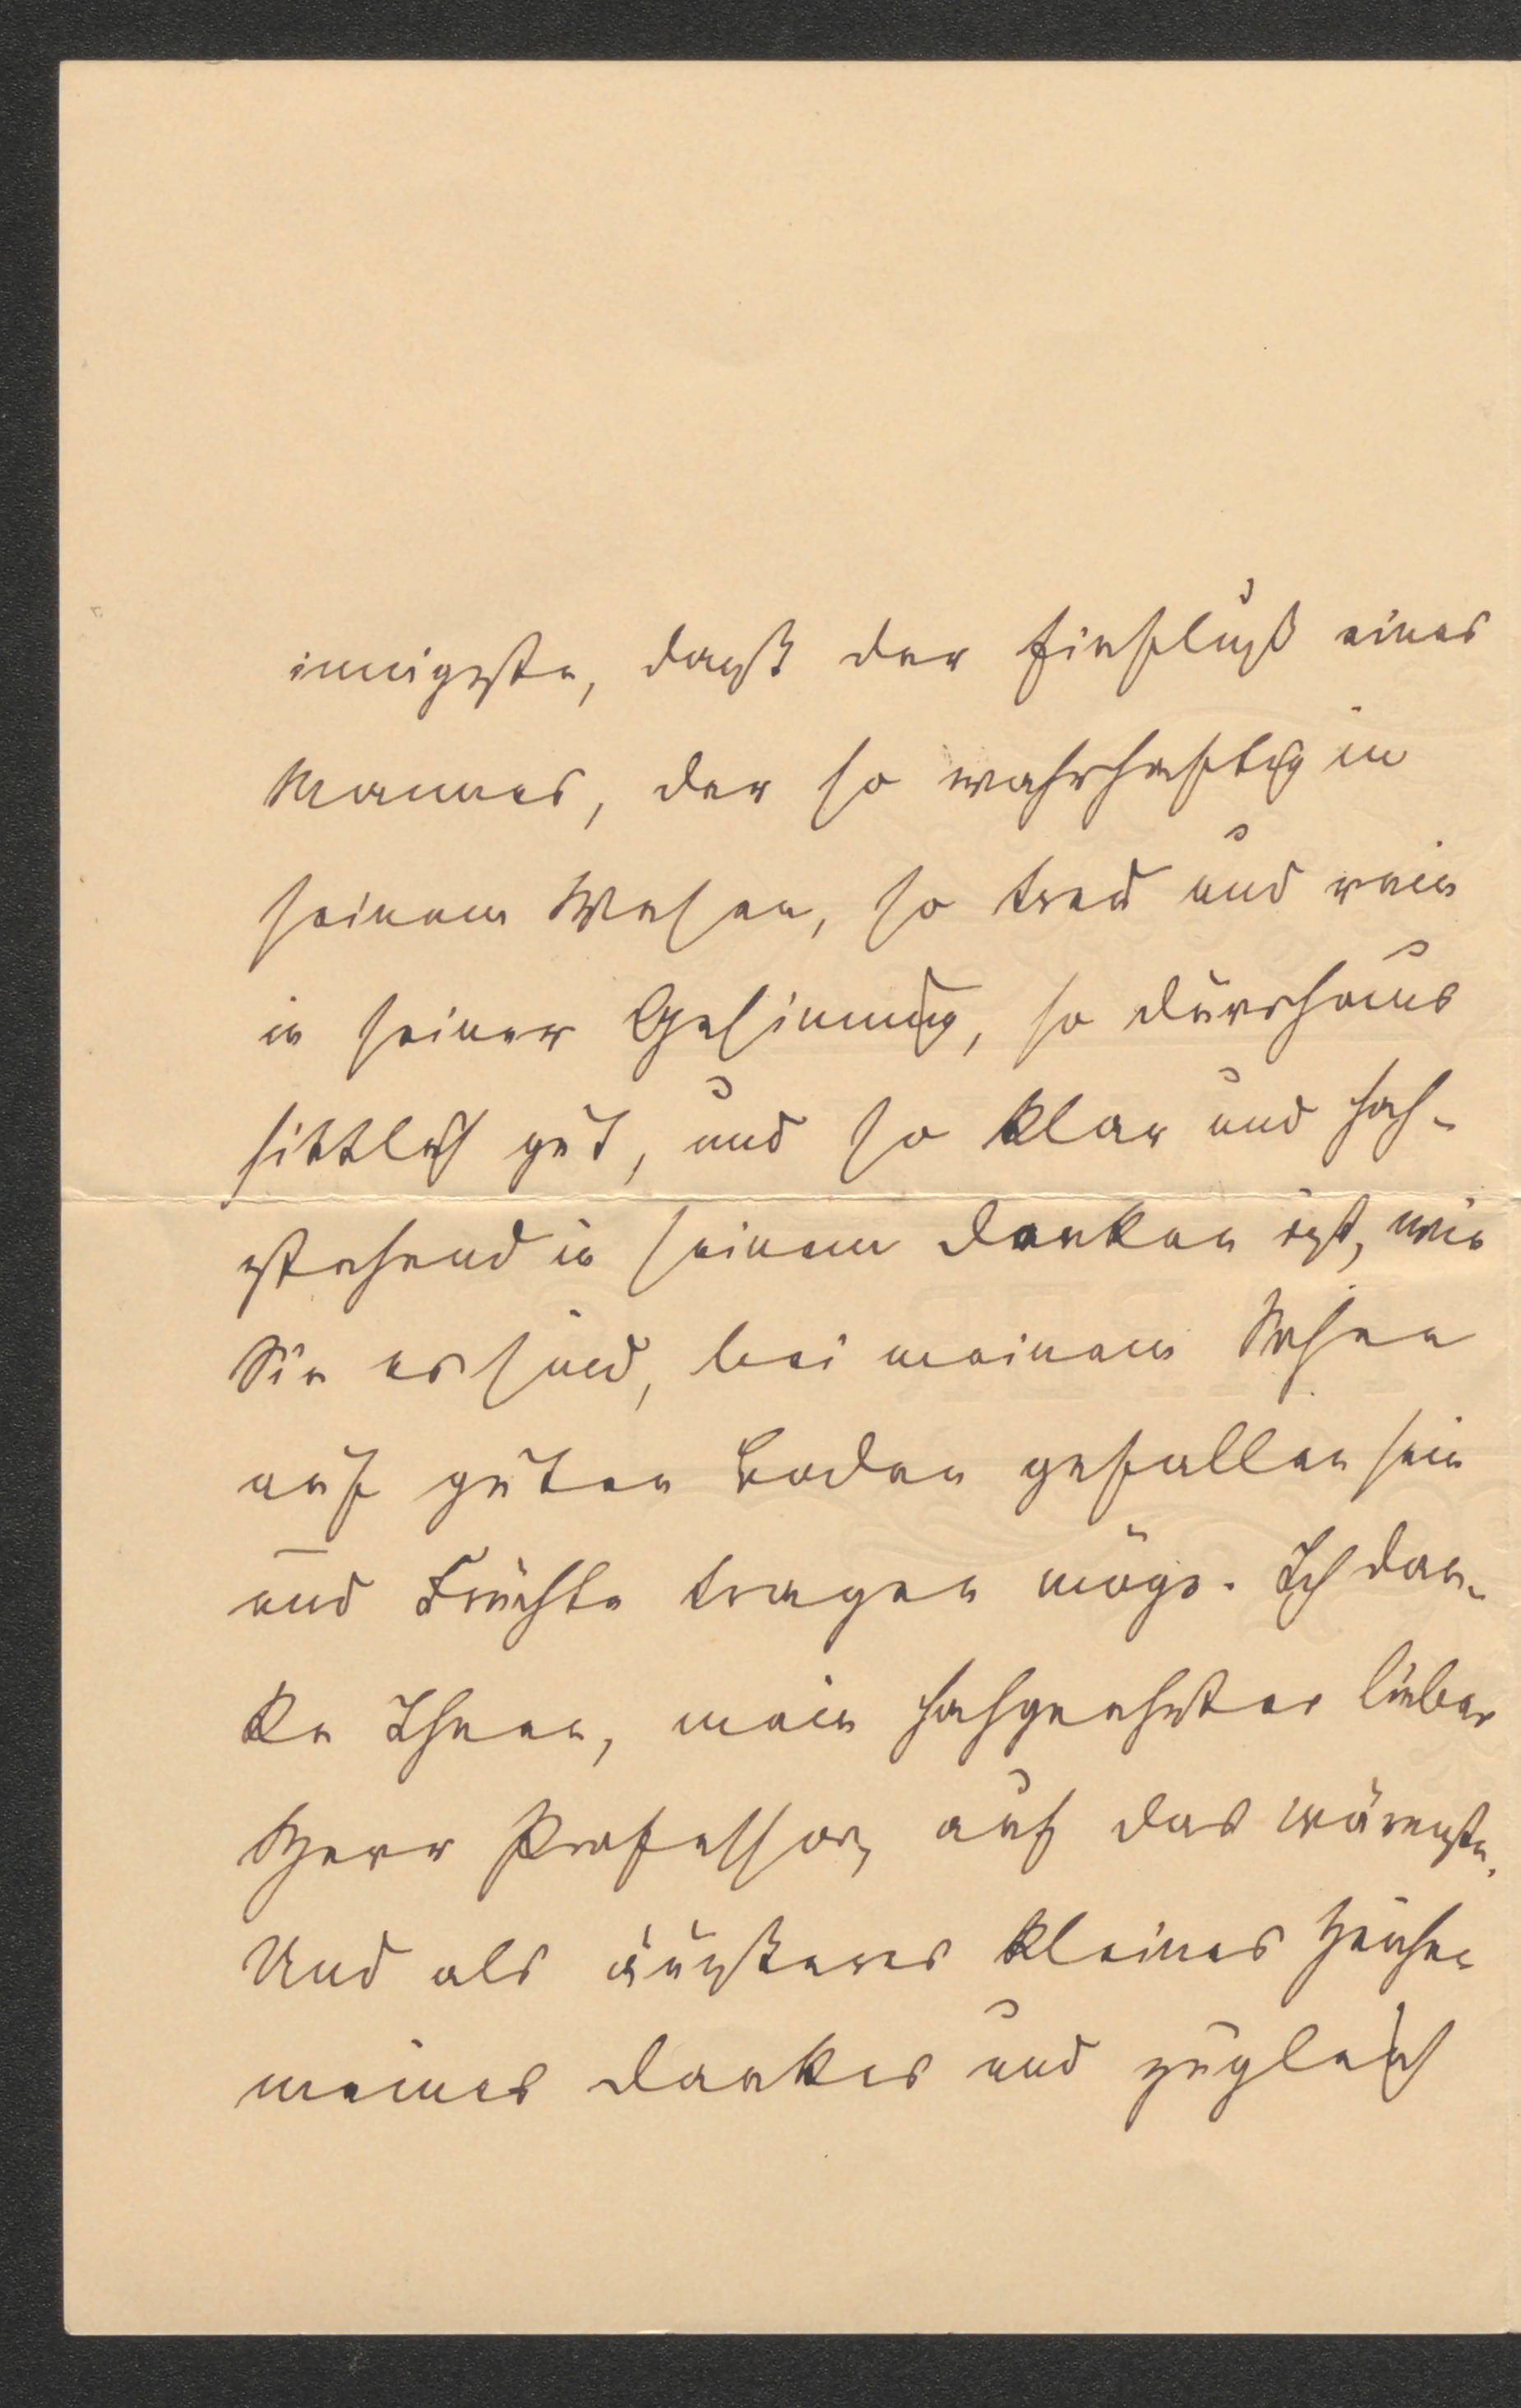 innigste, daß der Einfluß eines
Mannes, der so wahrhaftig in
seinem Wesen, so treu und rein
in seiner Gesinnung, so durchaus
sittlich gut, und so klar und hoch-
stehend in seinem Denken ist, wie
Sie es sind, bei meinem Sohne
auf guten Boden gefallen sein
und Früchte tragen möge. Ich dan-
ke Ihnen, mein hochgeehrter lieber
Herr Professor, auf das wärmste.
Und als äußeres kleines Zeichen
meines Dankes und zugleich